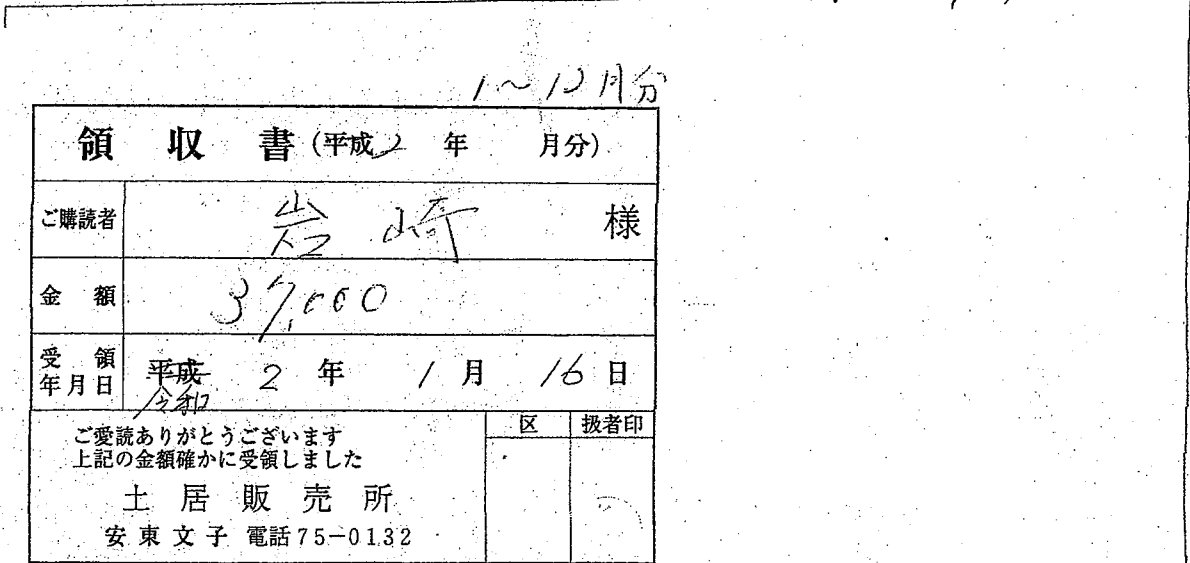 1〜12月分
領収書(平成2年 月分)
ご購読者 岩崎 様
金額 37,000
受領年月日 平成 2年 1月 16日
令和
区 扱者印
ご愛読ありがとうございます
上記の金額確かに受領しました
土居販売所
安東文子 電話75-0132